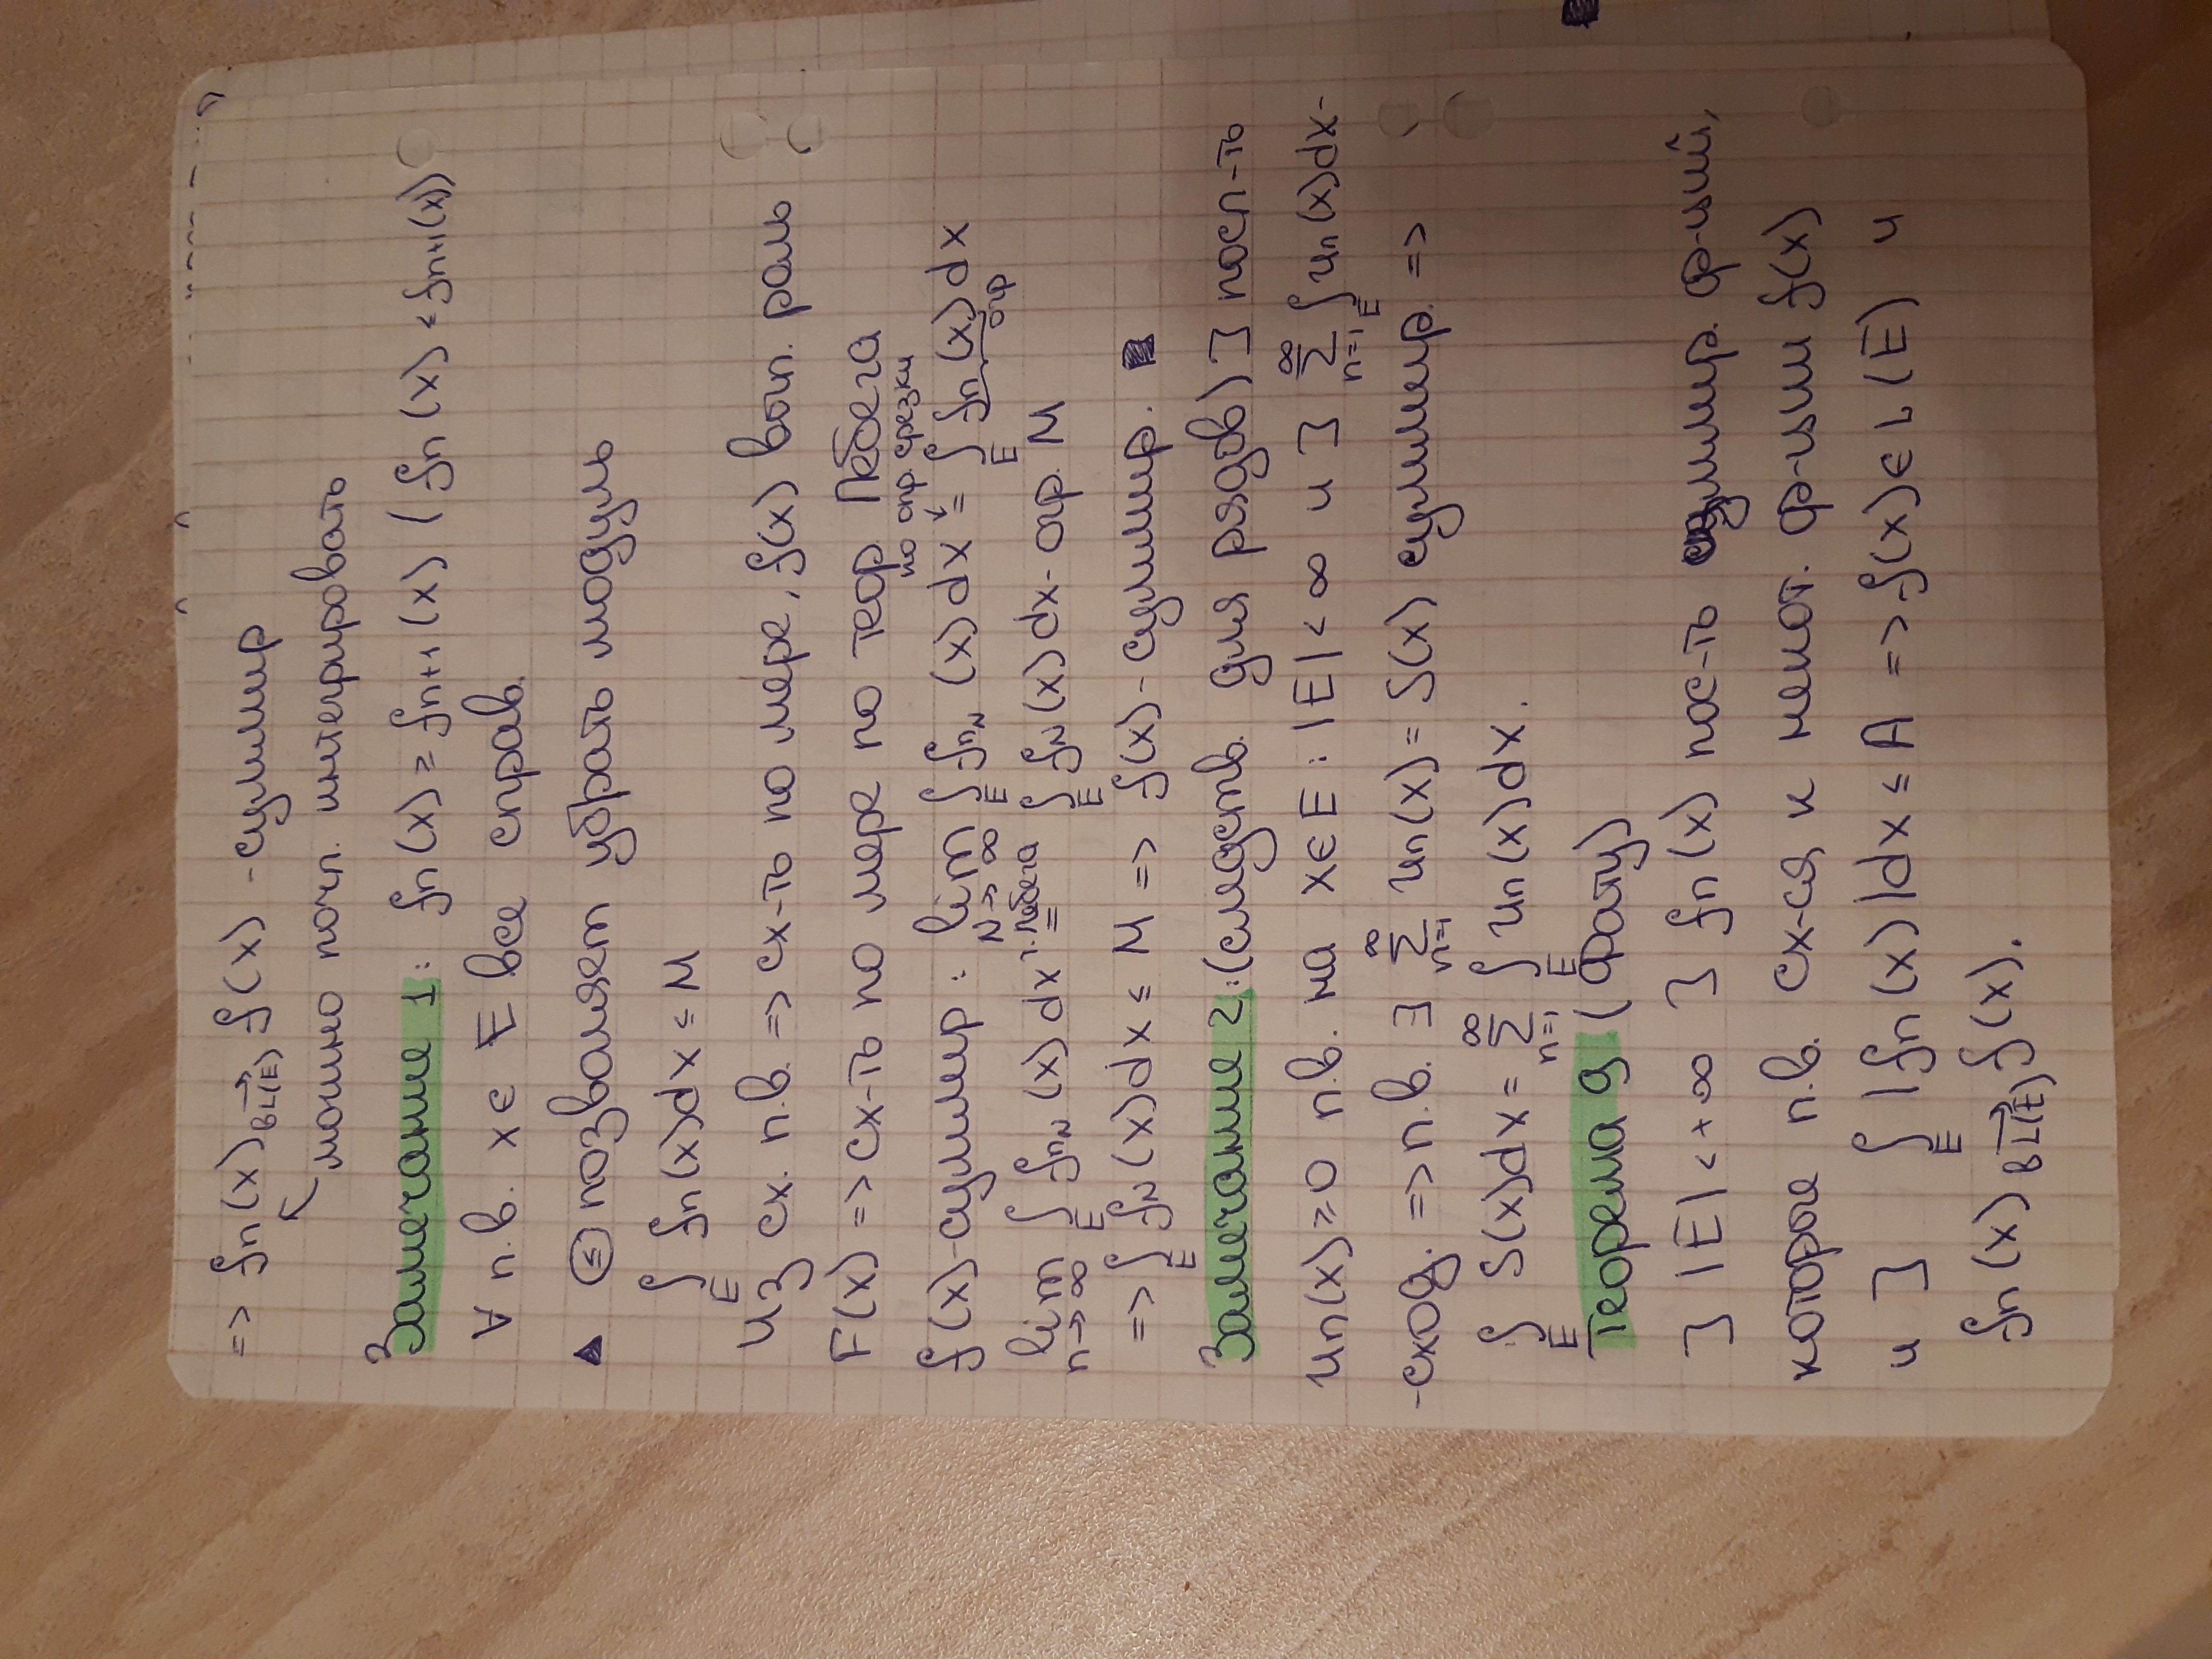 => fn(x) в L(E)→ f(x) - суммир
можно почл. интегрировать
Замечание 1: fn(x) ≥ fn+1(x) (fn(x) < fn+1(x))
∀ п.в. x ∈ E все справ.
▲ (≤) позволяет убрать модуль
∫E fn(x)dx ≤ M
Из сх. п.в. => сх-ть по мере, f(x) вып. роль
F(x) => сх-ть по мере по теор Лебега
по опр срезки
f(x)-суммир : lim N→∞ ∫E fnN(x)dx = ∫E fn(x)dx
опр
lim n→∞ ∫E fnN(x)dx т.Лебега = ∫E fN(x)dx - огр. M
=> ∫E fN(x)dx ≤ M => f(x) - суммир. ■
Замечание 2: (следств. для рядов) ] посл-ть
un(x) ≥ 0 п.в. на x ∈ E : |E| < ∞ и ] ∑ n=1 ∞ ∫E un(x)dx -
- сход. => п.в. ∃ ∑ n=1 ∞ un(x) = S(x) суммир. =>
∫E S(x)dx = ∑ n=1 ∞ ∫E un(x)dx.
Теорема 9 (Фату)
] |E| < +∞ ] fn(x) пос-ть суммир. ф-ций,
которое п.в. сх-ся к некот. ф-ции f(x)
и ] ∫E |fn(x)|dx ≤ A => f(x) ∈ L(E) и
fn(x) в L(E)→ f(x).